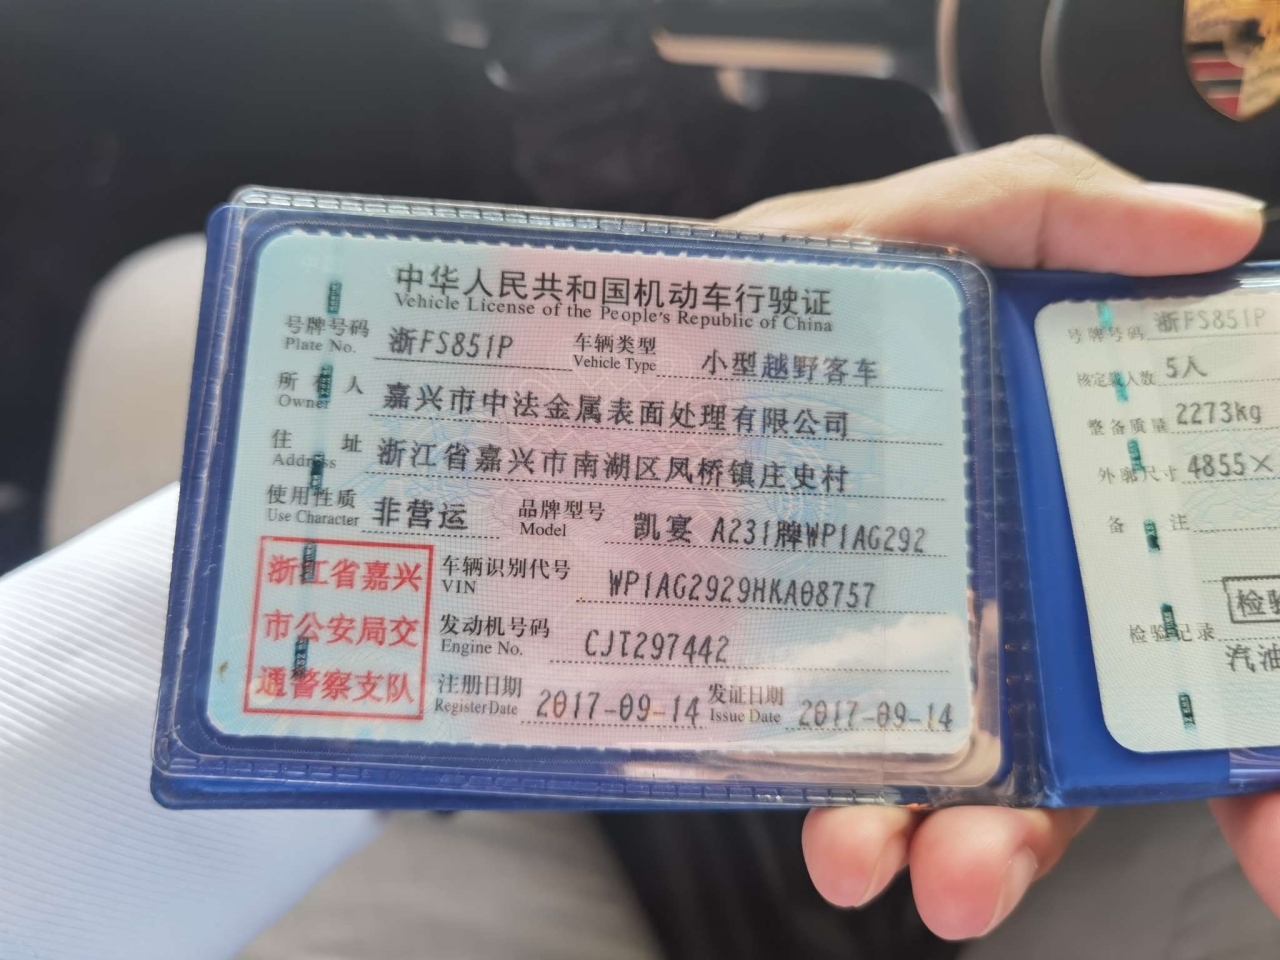 中华人民共和国机动车行驶证
Vehicle License of the People's Republic of China
号牌号码 浙FS851P 车辆类型 小型越野客车
Plate No. Vehicle Type
所有人 嘉兴市中法金属表面处理有限公司
Owner
住址 浙江省嘉兴市南湖区凤桥镇庄史村
Address
使用性质 非营运 品牌型号 凯宴 A231牌WP1AG292
Use Character Model
浙江省嘉兴
市公安局交
通警察支队
车辆识别代号 WP1AG2929HKA08757
VIN
发动机号码 CJT297442
Engine No.
注册日期 2017-09-14 发证日期 2017-09-14
Register Date Issue Date
号牌号码 浙FS851P
核定载人数 5人
整备质量 2273kg
外廓尺寸 4855×
备注
检验记录
检验
汽油